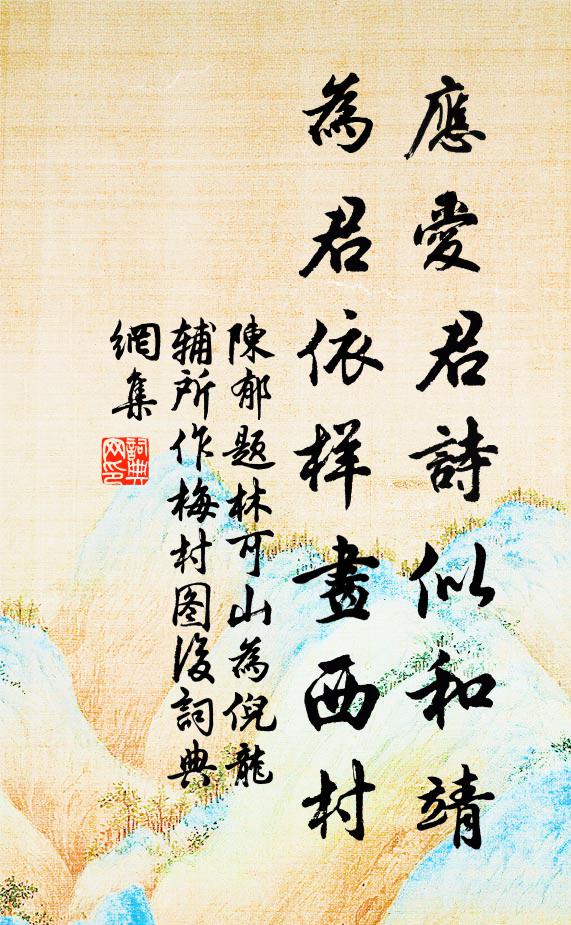 應愛君詩似和靖
為君依样畫西村
陳郁题林可山為倪龍
辅所作梅村图後詞典
網集
詞典
网印